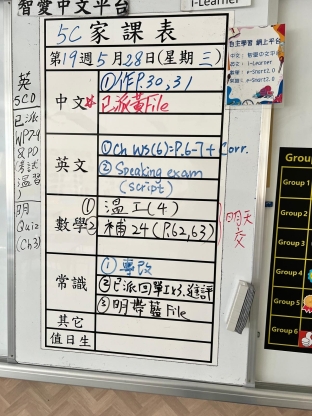 智囊中文平台
i-Learner
5C 家課表
第19週5月28日(星期三)
中文
①作P.30,31
*已派黃File
英文
①Ch WS(6)=P.6-7+Corr.
②Speaking exam
(script)
數學
①溫工(4)
②補24(P.62,63)
明天交
常識
①專改
②已派回單IVS.進評
③明帶藍File
其它
值日生
英
5CD
已派
WP7-9
&PD
(考試
溫習)
明
Quiz
(Ch3)
自主學習 網上平台
Group
Group 1
Group 2
Group 3
Group 4
Group 5
Group 6